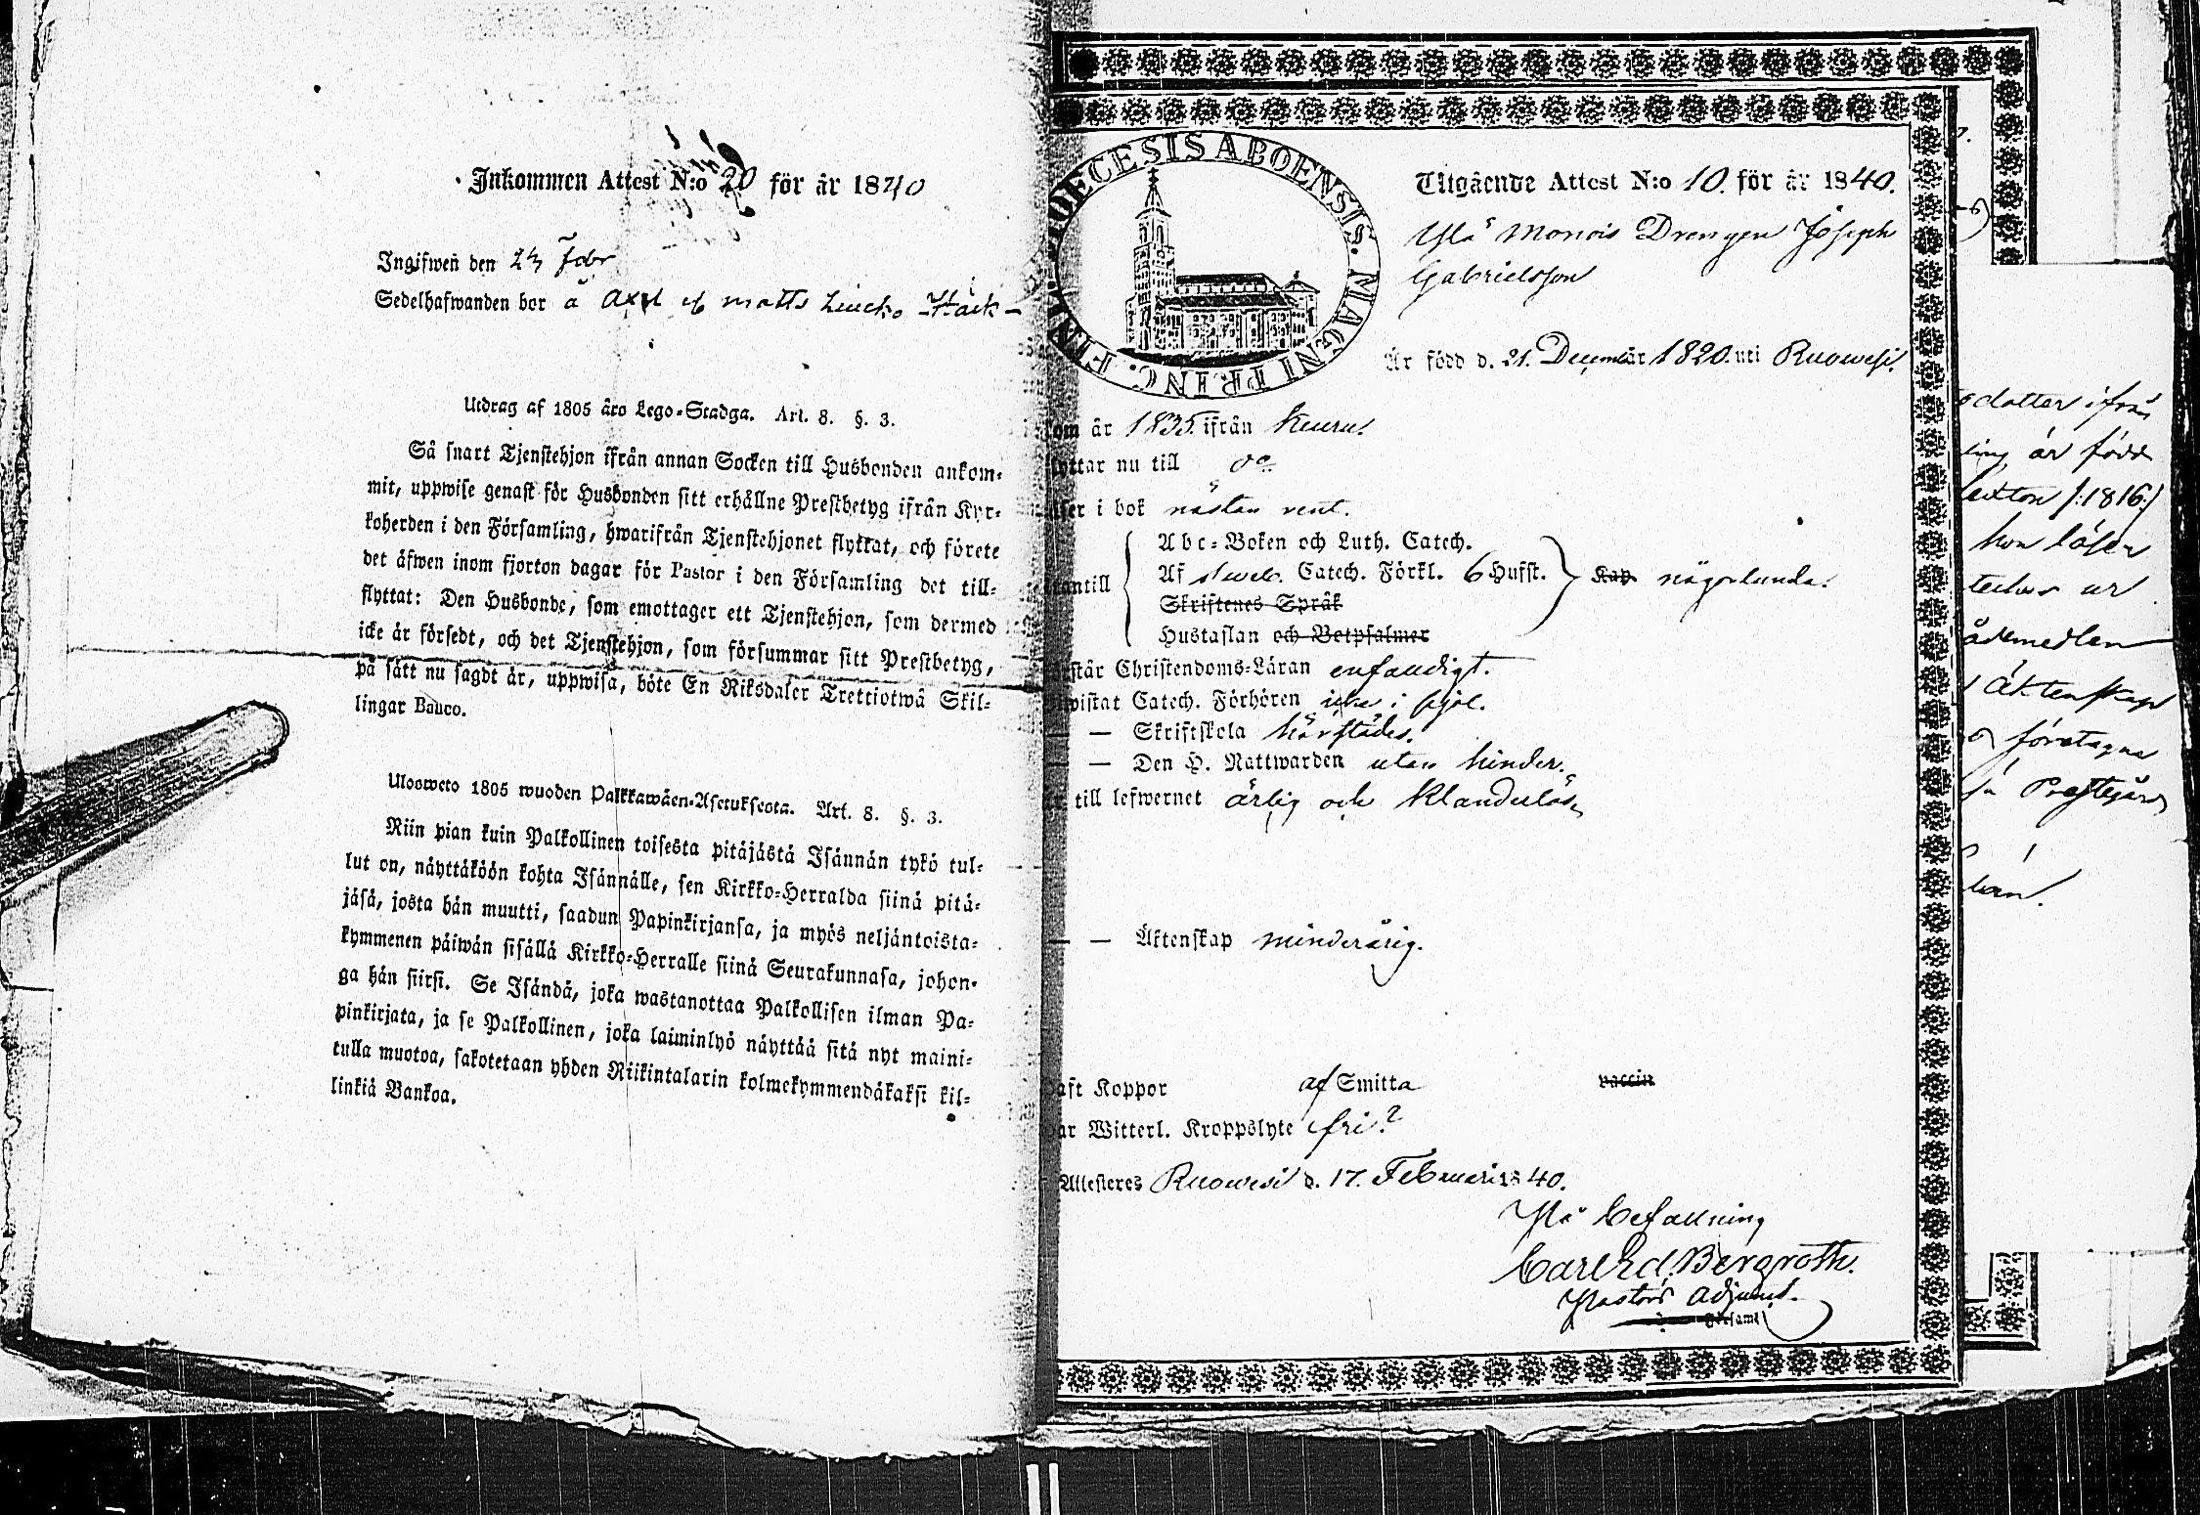 Inkommen Attest N:o 20 för år 1840
Ingifwen den 23 Febr
Sedelhafwanden bor å
Utdrag af 1805 års Lego-Stadga. Art. 8. §. 3.
Så snart Tjenstehjon ifrån annan Socken till Husbonden ankom-
mit, uppwise genast för Husbonden sitt erhållne Prestbetyg ifrån Kyr-
koherden i den Församling, hwarifrån Tjenstehjonet flyttat, och förete
det äfwen inom fjorton dagar för Pastor i den Församling det till-
flyttat: Den Husbonde, som emottager ett Tjenstehjon, som dermed
icke är försedt, och det Tjenstehjon, som försummar sitt Prestbetyg,
på sätt nu sagdt är, uppwisa, böte En Riksdaler Trettiotwå Skil-
lingar Banco.
Ulosweto 1805 wuoden Palkkawäen-Asetuksesta. Art. 8. §. 3.
Niin pian kuin Palkollinen toisesta pitäjästä Isännän tykö tul-
lut on, näyttäköön kohta Isännälle, sen Kirkko-Herralda siinä pitä-
jäsä, josta hän muutti, saadun Papinkirjansa, ja myös neljäntoista-
kymmenen päiwän sisällä Kirkko-Herralle siinä Seurakunnasa, johon-
ga hän siirsi. Se Isändä, joka wastanottaa Palkollisen ilman Pa-
pinkirjata, ja se Palkollinen, joka laiminlyö näyttää sitä nyt maini-
tulla muotoa, sakotetaan yhden Riikintalarin kolmekymmendäkaksi kil-
linkiä Bankoa.
DIOECESIS ABOENSIS. MAGNI PRINC. FINL.
Utgående Attest N:o 10. för år 1840.
Ylä Monois Drengen Joseph
Gabrielsson
Är född d. 21. December 1820. uti Ruowesi.
kom år 1835. ifrån Keuru.
flyttar nu till do
läser i bok nästan rent.
Abc-Boken och Luth. Catech.
utantill Af Sweb. Catech. Förkl. 6 Hufst. Kap. någorlunda.
Skriftenes Språk
Hustaflan och Botpsalmer
förstår Christendoms-Läran enfaldigt.
bewistat Catech. Förhören icke i fjol.
— — Skriftskola härstädes.
— — Den H. Nattwarden utan hinder.
är till lefwernet ärlig och klanderlös
— — Äktenskap minderårig.
haft Koppor af Smitta vaccin
har Witterl. Kroppslyte fri.
Attesteres Ruowesi d. 17. Februari 1840.
På befallning
Carl Ed. Bergroth.
Pastors Adjunct.
dotter ifrån
ling, är född
sexton /:1816:/
hon läser
teches ur
Äktenskap
företagna
Prestegård